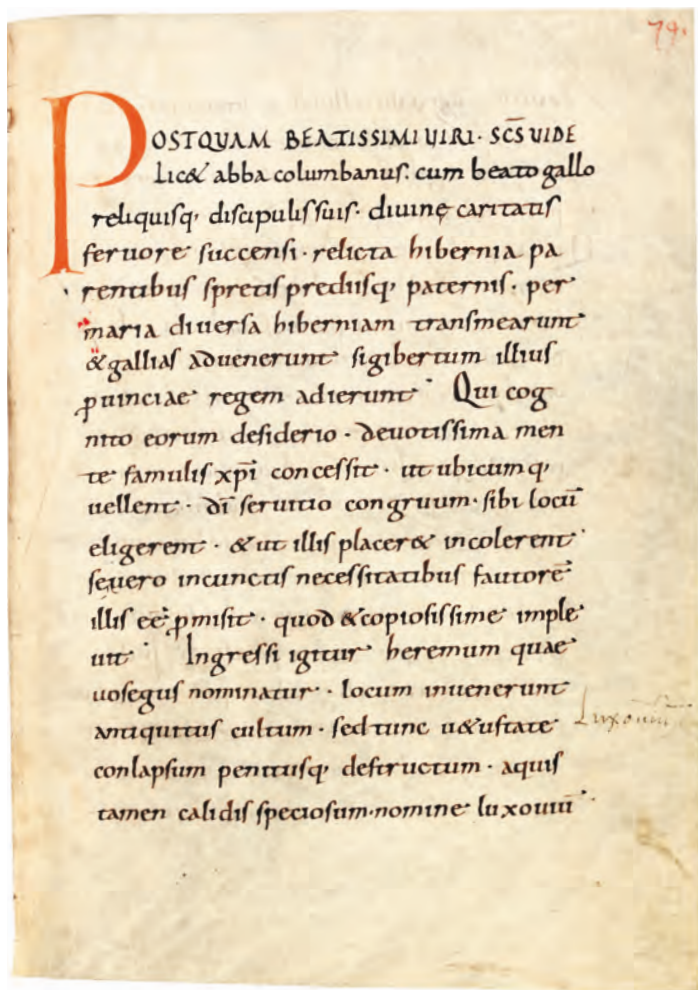 79.
POSTQUAM BEATISSIMI UIRI· SC̄S UIDE
lic& abba columbanus: cum beato gallo
reliquisq, discipulis suis· diuinę caritatis
feruore succensi· relicta hibernia pa
rentibus spretis prediisq, paternis· per
maria diuersa hiberniam transmearunt
& gallias aduenerunt sigibertum illius
ꝓuinciae regem adierunt· Qui cog
nito eorum desiderio· deuotissima men
te famulis xp̄i concessit· ut ubicumq,
uellent· dī seruitio congruum· sibi locū
eligerent· & ut illis placer& incolerent·
se uero incunctis necessitatibus fautorē
illis eē ꝓmisit· quod & copiosissime imple
uit· Ingressi igitur heremum quae
uosegus nominatur· locum inuenerunt
antiquitus cultum· sed tunc u&ustate
conlapsum penitusq, destructum· aquis
tamen calidis speciosum· nomine luxouiū·